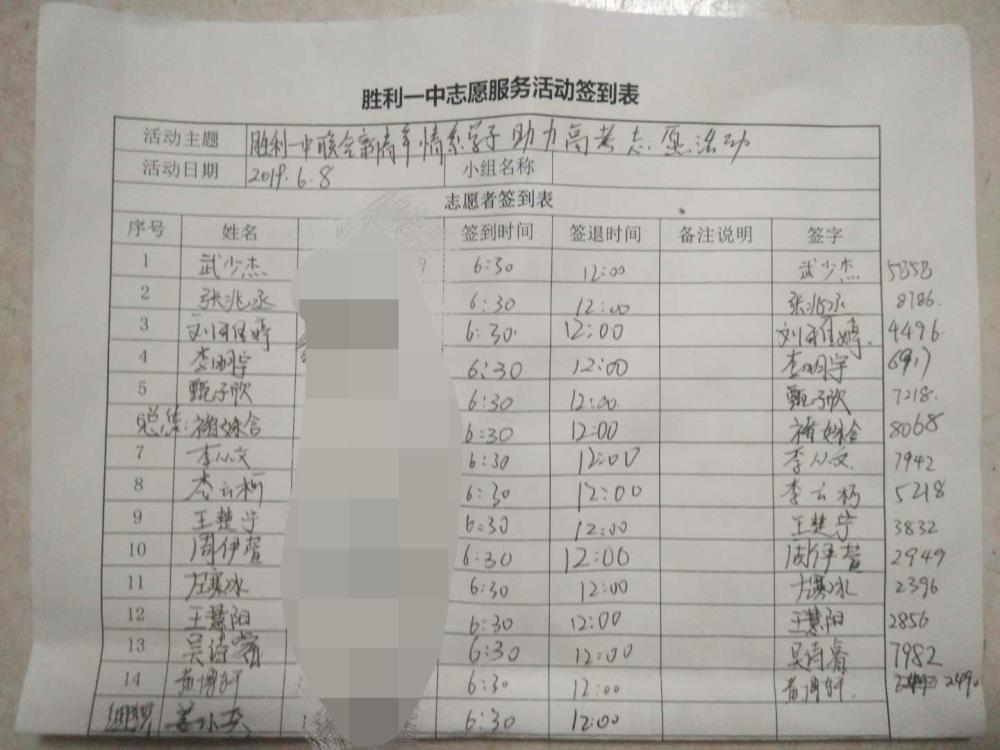 胜利一中志愿服务活动签到表
活动主题 胜利一中联合新青年情系学子助力高考志愿活动
活动日期 2019.6.8 小组名称
志愿者签到表
序号 姓名 签到时间 签退时间 备注说明 签字
1 武少杰 6:30 12:00 武少杰 5858
2 张兆丞 6:30 12:00 张兆丞 8786
3 刘雨婷 6:30 12:00 刘雨婷 4496
4 李明宇 6:30 12:00 李明宇 6917
5 甄子欣 6:30 12:00 甄子欣 7218
6 总练: 褚姝含 6:30 12:00 褚姝含 8068
7 李从文 6:30 12:00 李从文 7942
8 李云柯 6:30 12:00 李云柯 5218
9 王楚宁 6:30 12:00 王楚宁 3832
10 周伊萱 6:30 12:00 周伊萱 2949
11 左寒冰 6:30 12:00 左寒冰 2396
12 王慧阳 6:30 12:00 王慧阳 2856
13 吴诗睿 6:30 12:00 吴诗睿 7982
14 黄博轩 6:30 12:00 黄博轩 2490
6:30 12:00